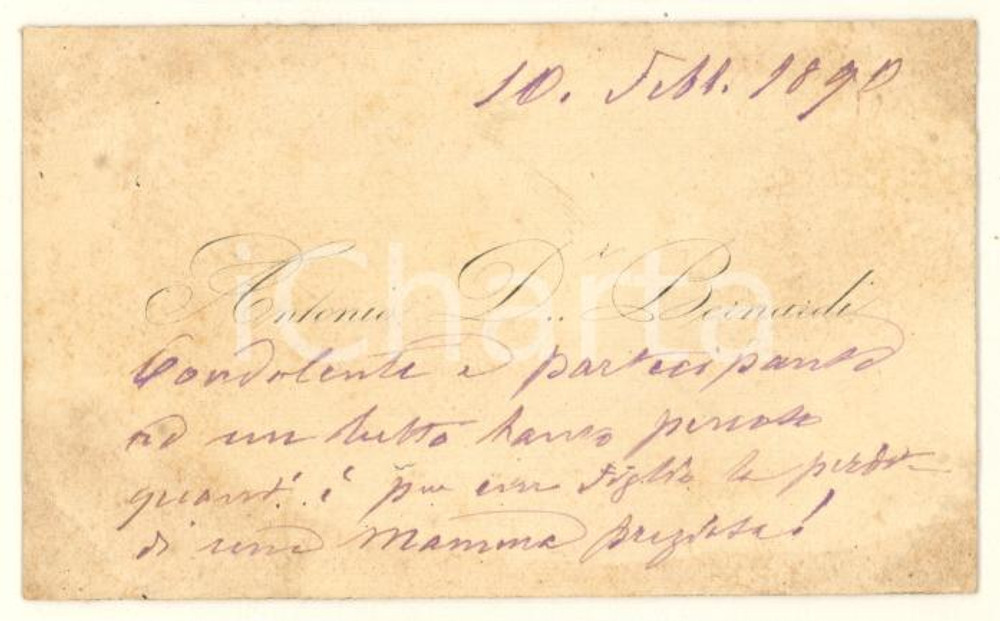 10. Febb. 1890
Antonio D.r Bernardi
Condolente e partecipante
ad un lutto tanto penoso
quant'è per un Figlio la perdita
di una Mamma preziosa!
iCharta